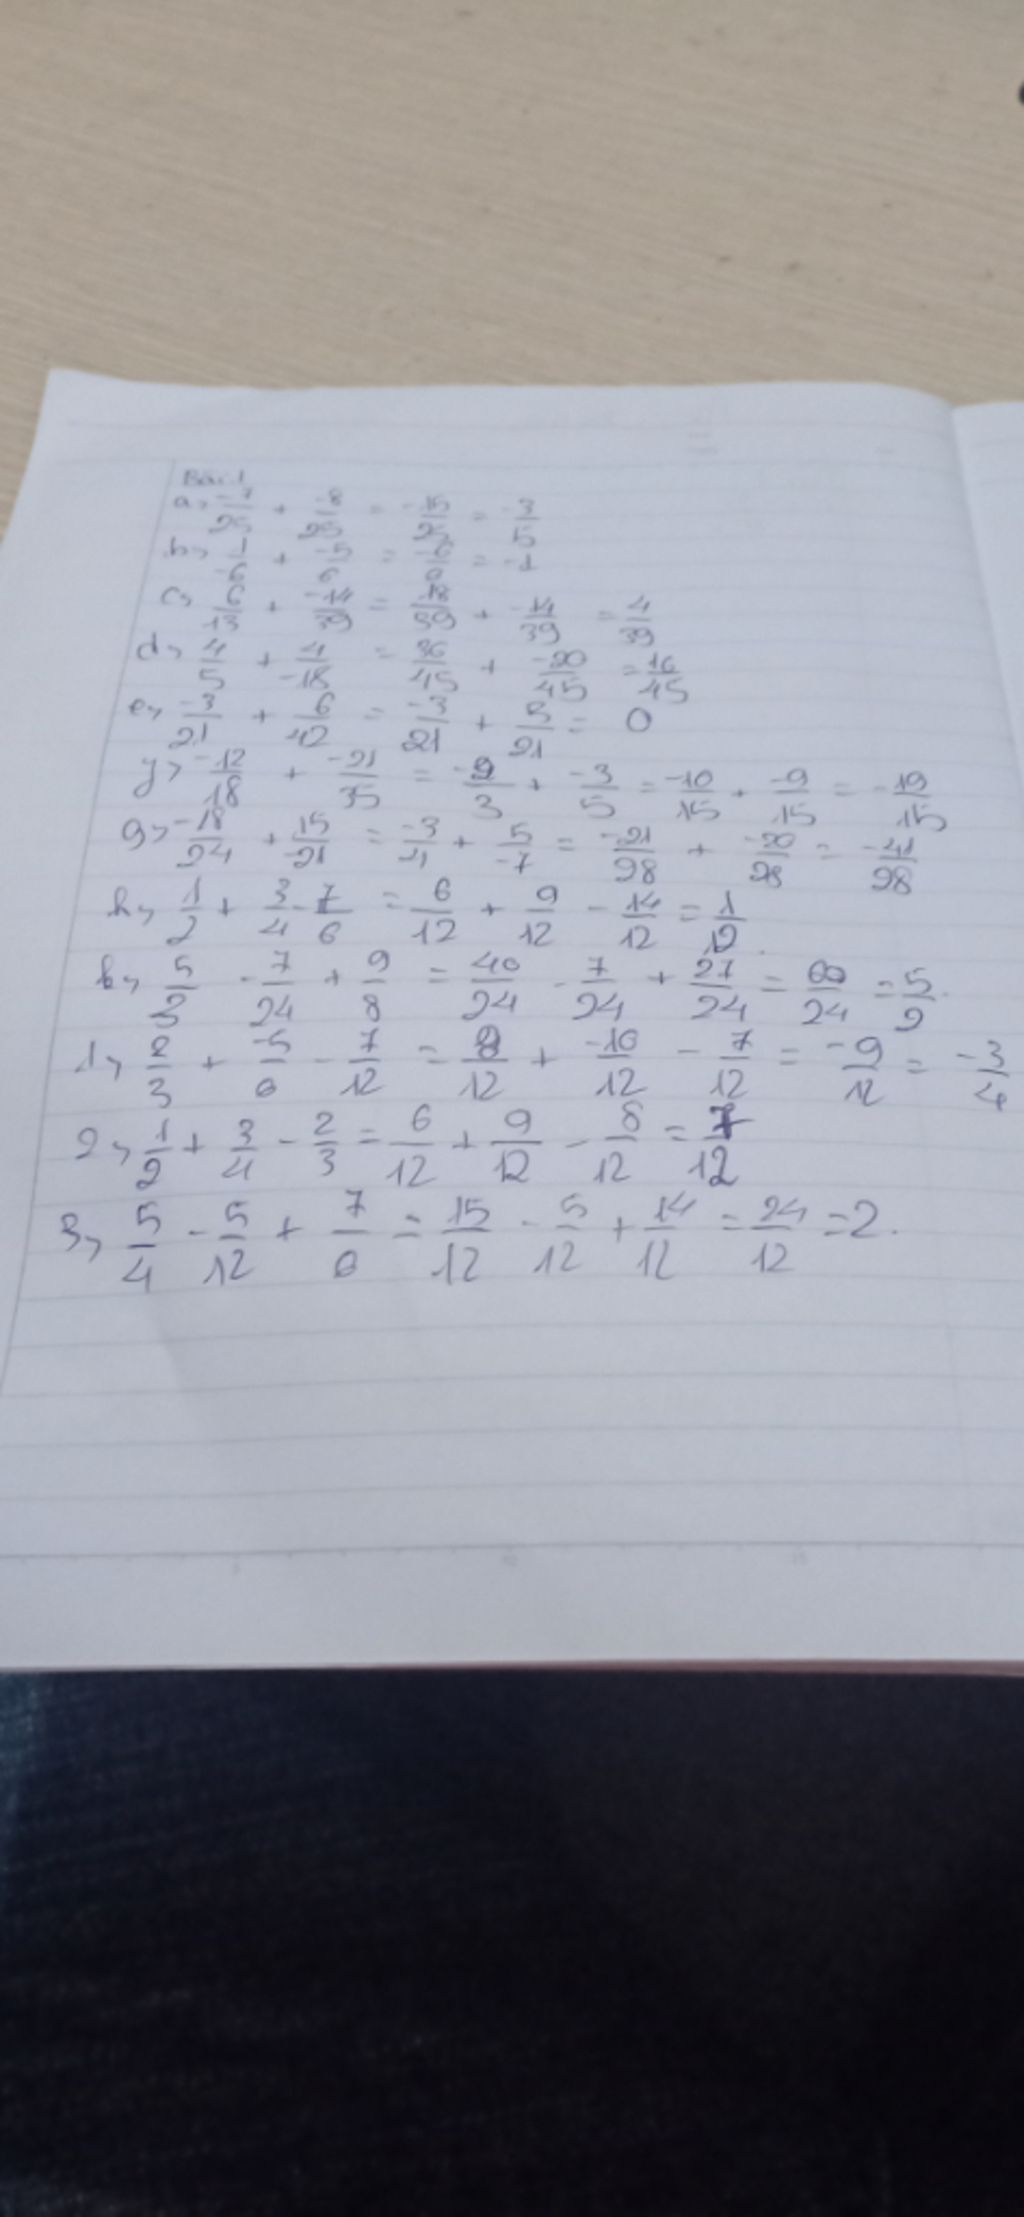 Bài 1
a, -7/25 + -8/25 = -15/25 = -3/5
b, 1/-6 + -5/6 = -6/6 = -1
c, 6/13 + -14/39 = 18/39 + -14/39 = 4/39
d, 4/5 + 4/-18 = 36/45 + -20/45 = 16/45
e, -3/21 + 6/42 = -3/21 + 3/21 = 0
y, -12/18 + -21/35 = -2/3 + -3/5 = -10/15 + -9/15 = -19/15
g, -18/24 + 15/-21 = -3/4 + 5/-7 = -21/28 + -20/28 = -41/28
h, 1/2 + 3/4 - 7/6 = 6/12 + 9/12 - 14/12 = 1/12.
b, 5/3 - 7/24 + 9/8 = 40/24 - 7/24 + 27/24 = 60/24 = 5/2.
1, 2/3 + -5/6 - 7/12 = 8/12 + -10/12 - 7/12 = -9/12 = -3/4
2, 1/2 + 3/4 - 2/3 = 6/12 + 9/12 - 8/12 = 7/12
3, 5/4 - 5/12 + 7/6 = 15/12 - 5/12 + 14/12 = 24/12 = 2.